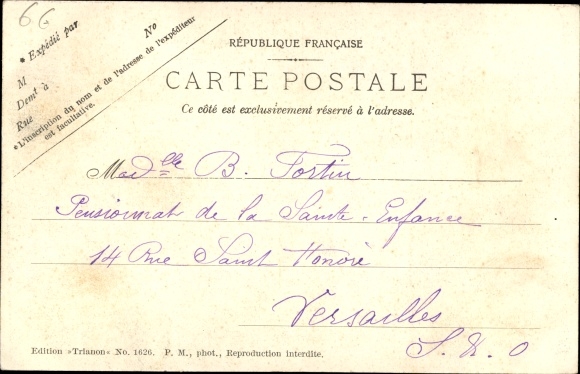 66
* Expédié par
No
M
Demt à
Rue
*L'inscription du nom et de l'adresse de l'expéditeur
est facultative.
RÉPUBLIQUE FRANÇAISE
CARTE POSTALE
Ce côté est exclusivement réservé à l'adresse.
Madelle B. Fortin
Pensionnat de la Sainte-Enfance
14 Rue Saint Honoré
Versailles
S. & O
Edition »Trianon« No. 1626. P. M., phot., Reproduction interdite.